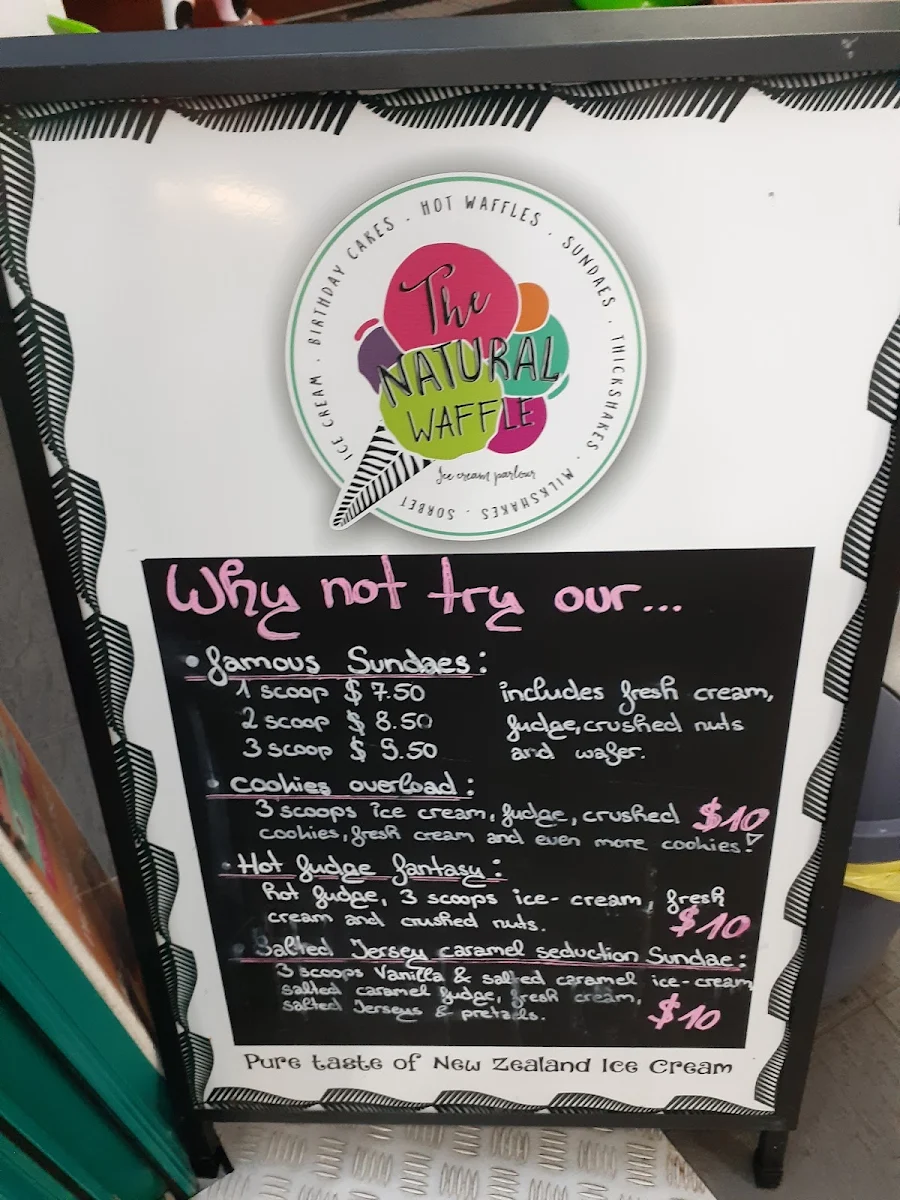 ICE CREAM · BIRTHDAY CAKES · HOT WAFFLES · SUNDAES · THICKSHAKES · MILKSHAKES · SORBET
The
NATURAL
WAFFLE
Ice cream parlour
Why not try our...
• famous Sundaes:
1 scoop $ 7.50 includes fresh cream,
2 scoop $ 8.50 fudge, crushed nuts
3 scoop $ 9.50 and wafer.
• cookies overload:
3 scoops ice cream, fudge, crushed $10
cookies, fresh cream and even more cookies!
• Hot fudge fantasy:
hot fudge, 3 scoops ice-cream, fresh
cream and crushed nuts. $10
• Salted Jersey caramel seduction Sundae:
3 scoops Vanilla & salted caramel ice-cream,
salted caramel fudge, fresh cream,
salted Jerseys & pretzels. $10
Pure taste of New Zealand Ice Cream